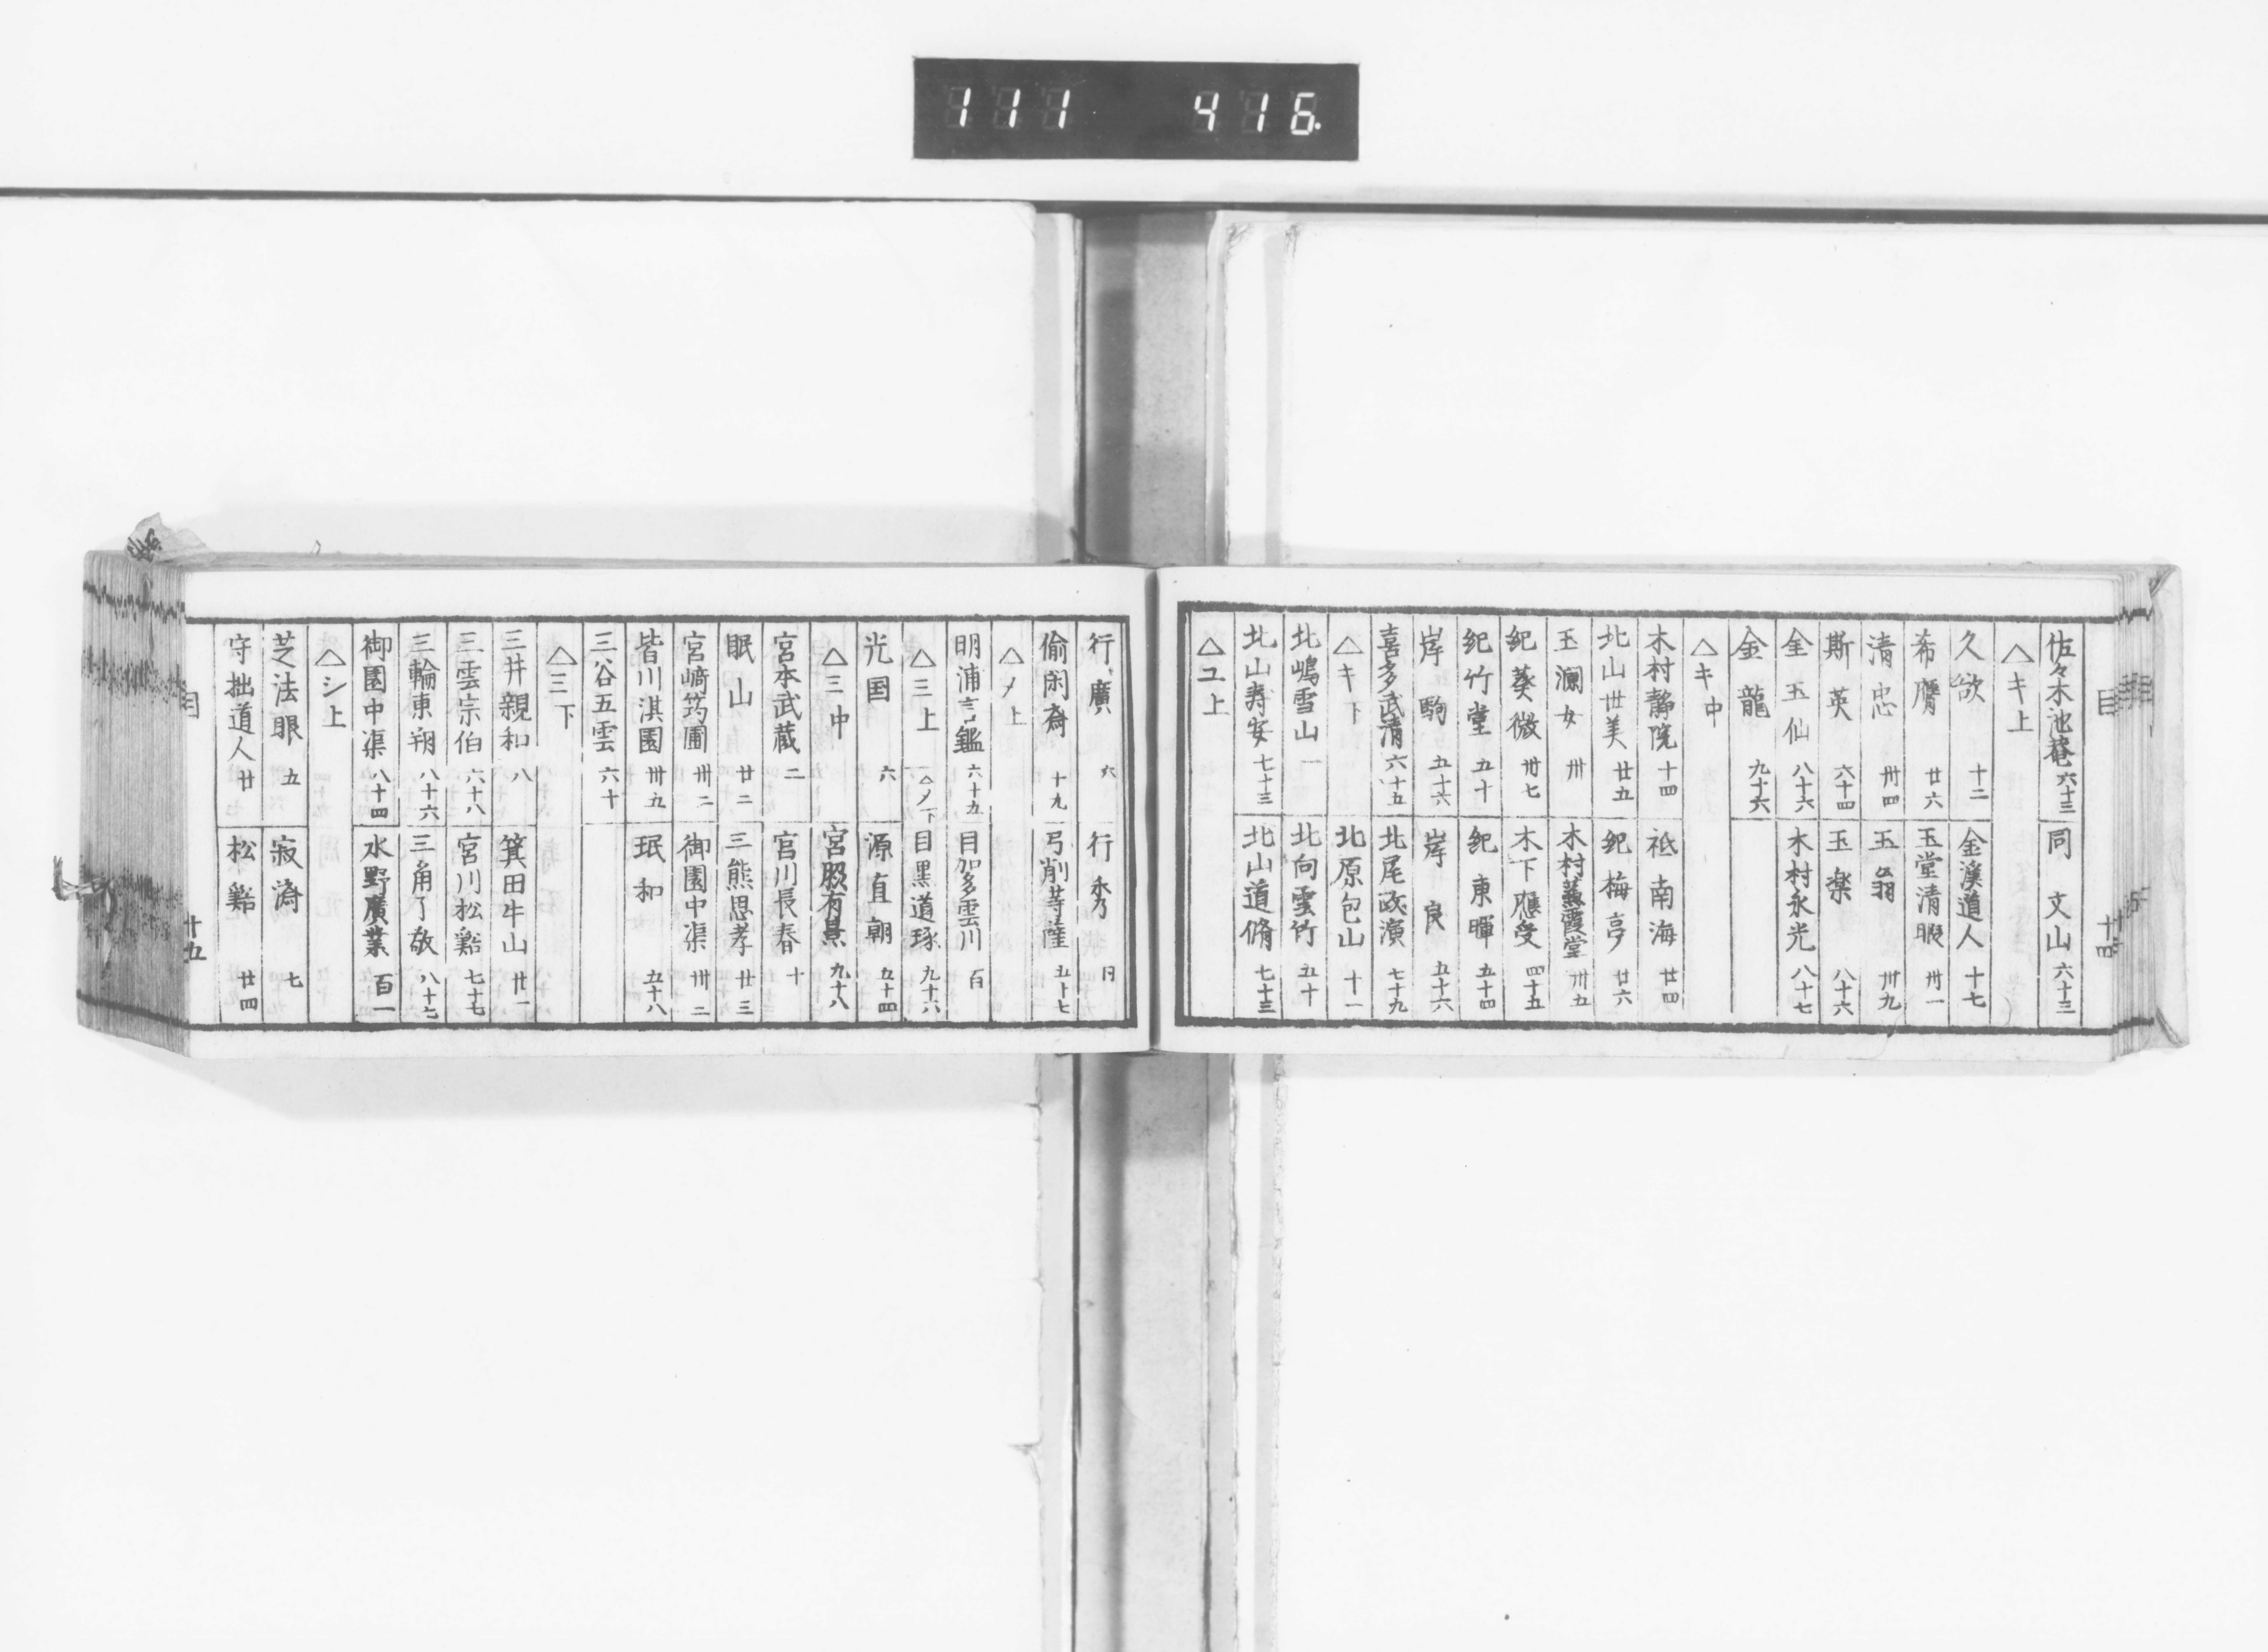 111 416.
目 十四
佐々木池菴 六十三 同 文山 六十三
△キ上
久 欲 十二 金溪道人 十七
希膺 廿六 玉堂清暇 卅一
清忠 卅四 玉翁 卅九
斯英 六十四 玉楽 八十六
金玉仙 八十六 木村永光 八十七
金龍 九十六
△キ中
木村静院 十四 祗南海 廿四
北山世美 廿五 紀梅亭 廿六
玉瀾女 卅 木村蒹葭堂 卅五
紀葵微 卅七 木下應受 四十五
紀竹堂 五十 紀東暉 五十四
岸駒 五十六 岸良 五十六
喜多武清 六十五 北尾政演 七十九
△キ下 北原包山 十一
北嶋雪山 一 北向雲竹 五十
北山寿安 七十三 北山道脩 七十三
△ユ上
行廣 六 行秀 同
偷閑斎 十九 弓削等薩 五十七
△メ上
明浦言鑑 六十九 目加多雲川 百
△三上 △メ下 目黒道琢 九十六
光国 六 源直朝 五十四
△三中 宮股有景 九十八
宮本武蔵 二 宮川長春 十
眠山 廿二 三熊思孝 廿三
宮﨑筠圃 卅二 御園中渠 卅二
皆川淇園 卅九 珉和 五十八
三谷五雲 六十
△三下
三井親和 八 箕田牛山 廿一
三雲宗伯 六十八 宮川松谿 七十七
三輪東朔 八十六 三角了敬 八十七
御園中渠 八十四 水野廣業 百一
△シ上
芝法眼 五 寂済 七
守拙道人 廿 松谿 廿四
目 十五